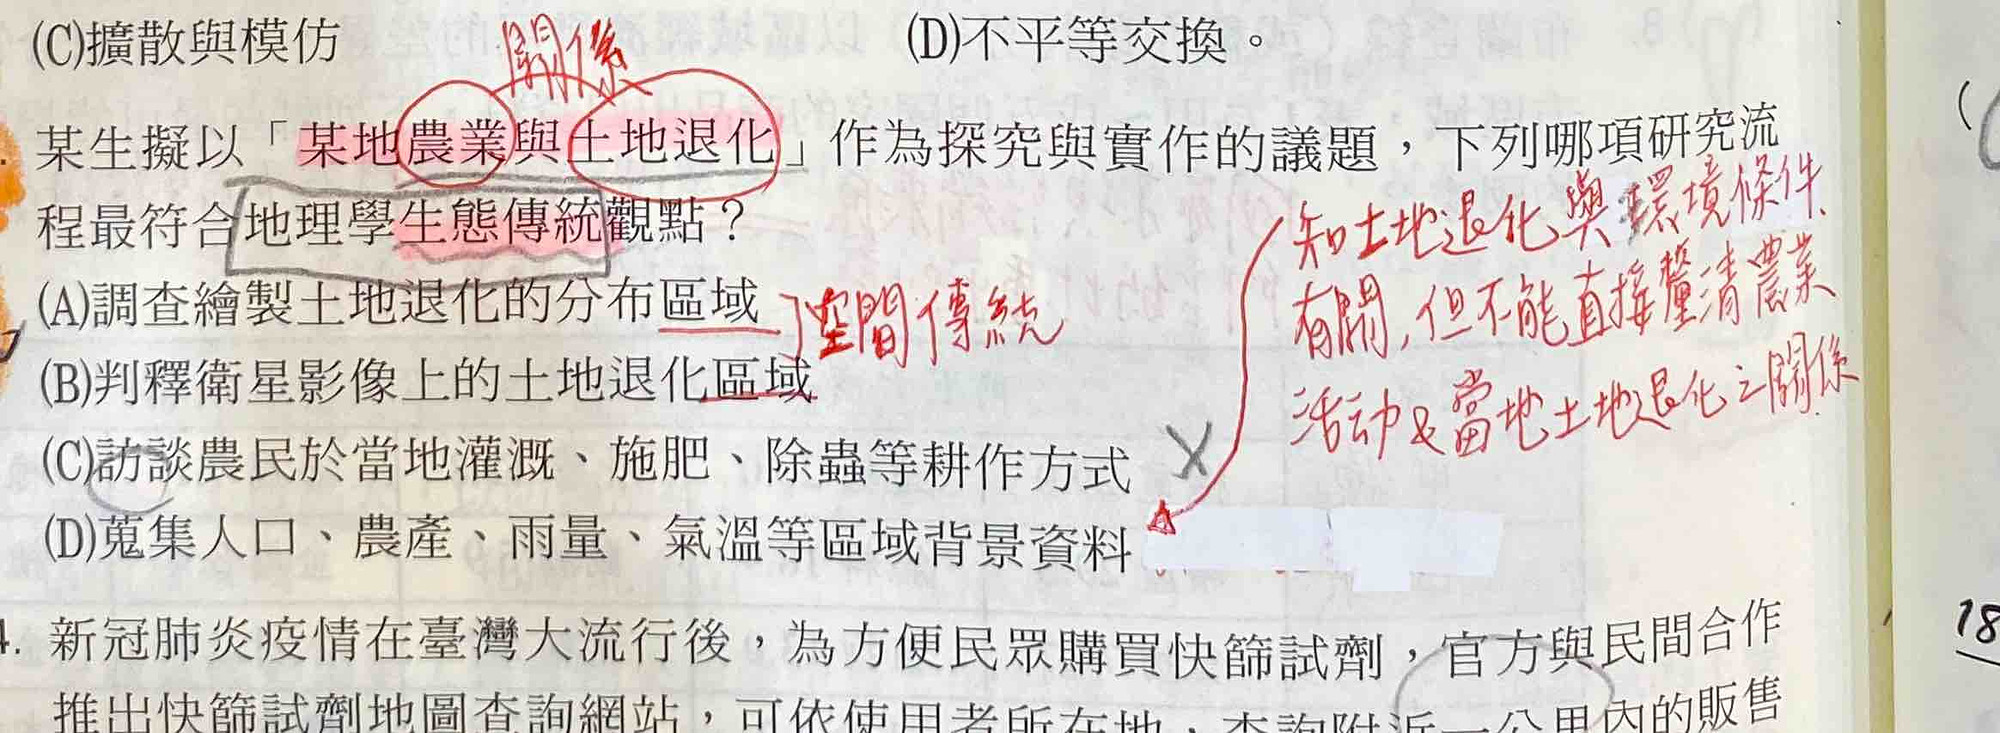 (C)擴散與模仿 (D)不平等交換。
關係
某生擬以「某地農業與土地退化」作為探究與實作的議題，下列哪項研究流
程最符合地理學生態傳統觀點？
知土地退化與環境條件
有關，但不能直接釐清農業
活动&當地土地退化之關係
(A)調查繪製土地退化的分布區域
空間傳統
(B)判釋衛星影像上的土地退化區域
(C)訪談農民於當地灌溉、施肥、除蟲等耕作方式
(D)蒐集人口、農產、雨量、氣溫等區域背景資料
4. 新冠肺炎疫情在臺灣大流行後，為方便民眾購買快篩試劑，官方與民間合作
推出快篩試劑地圖查詢網站，可依使用者所在地，查詢附近一公里內的販售
18